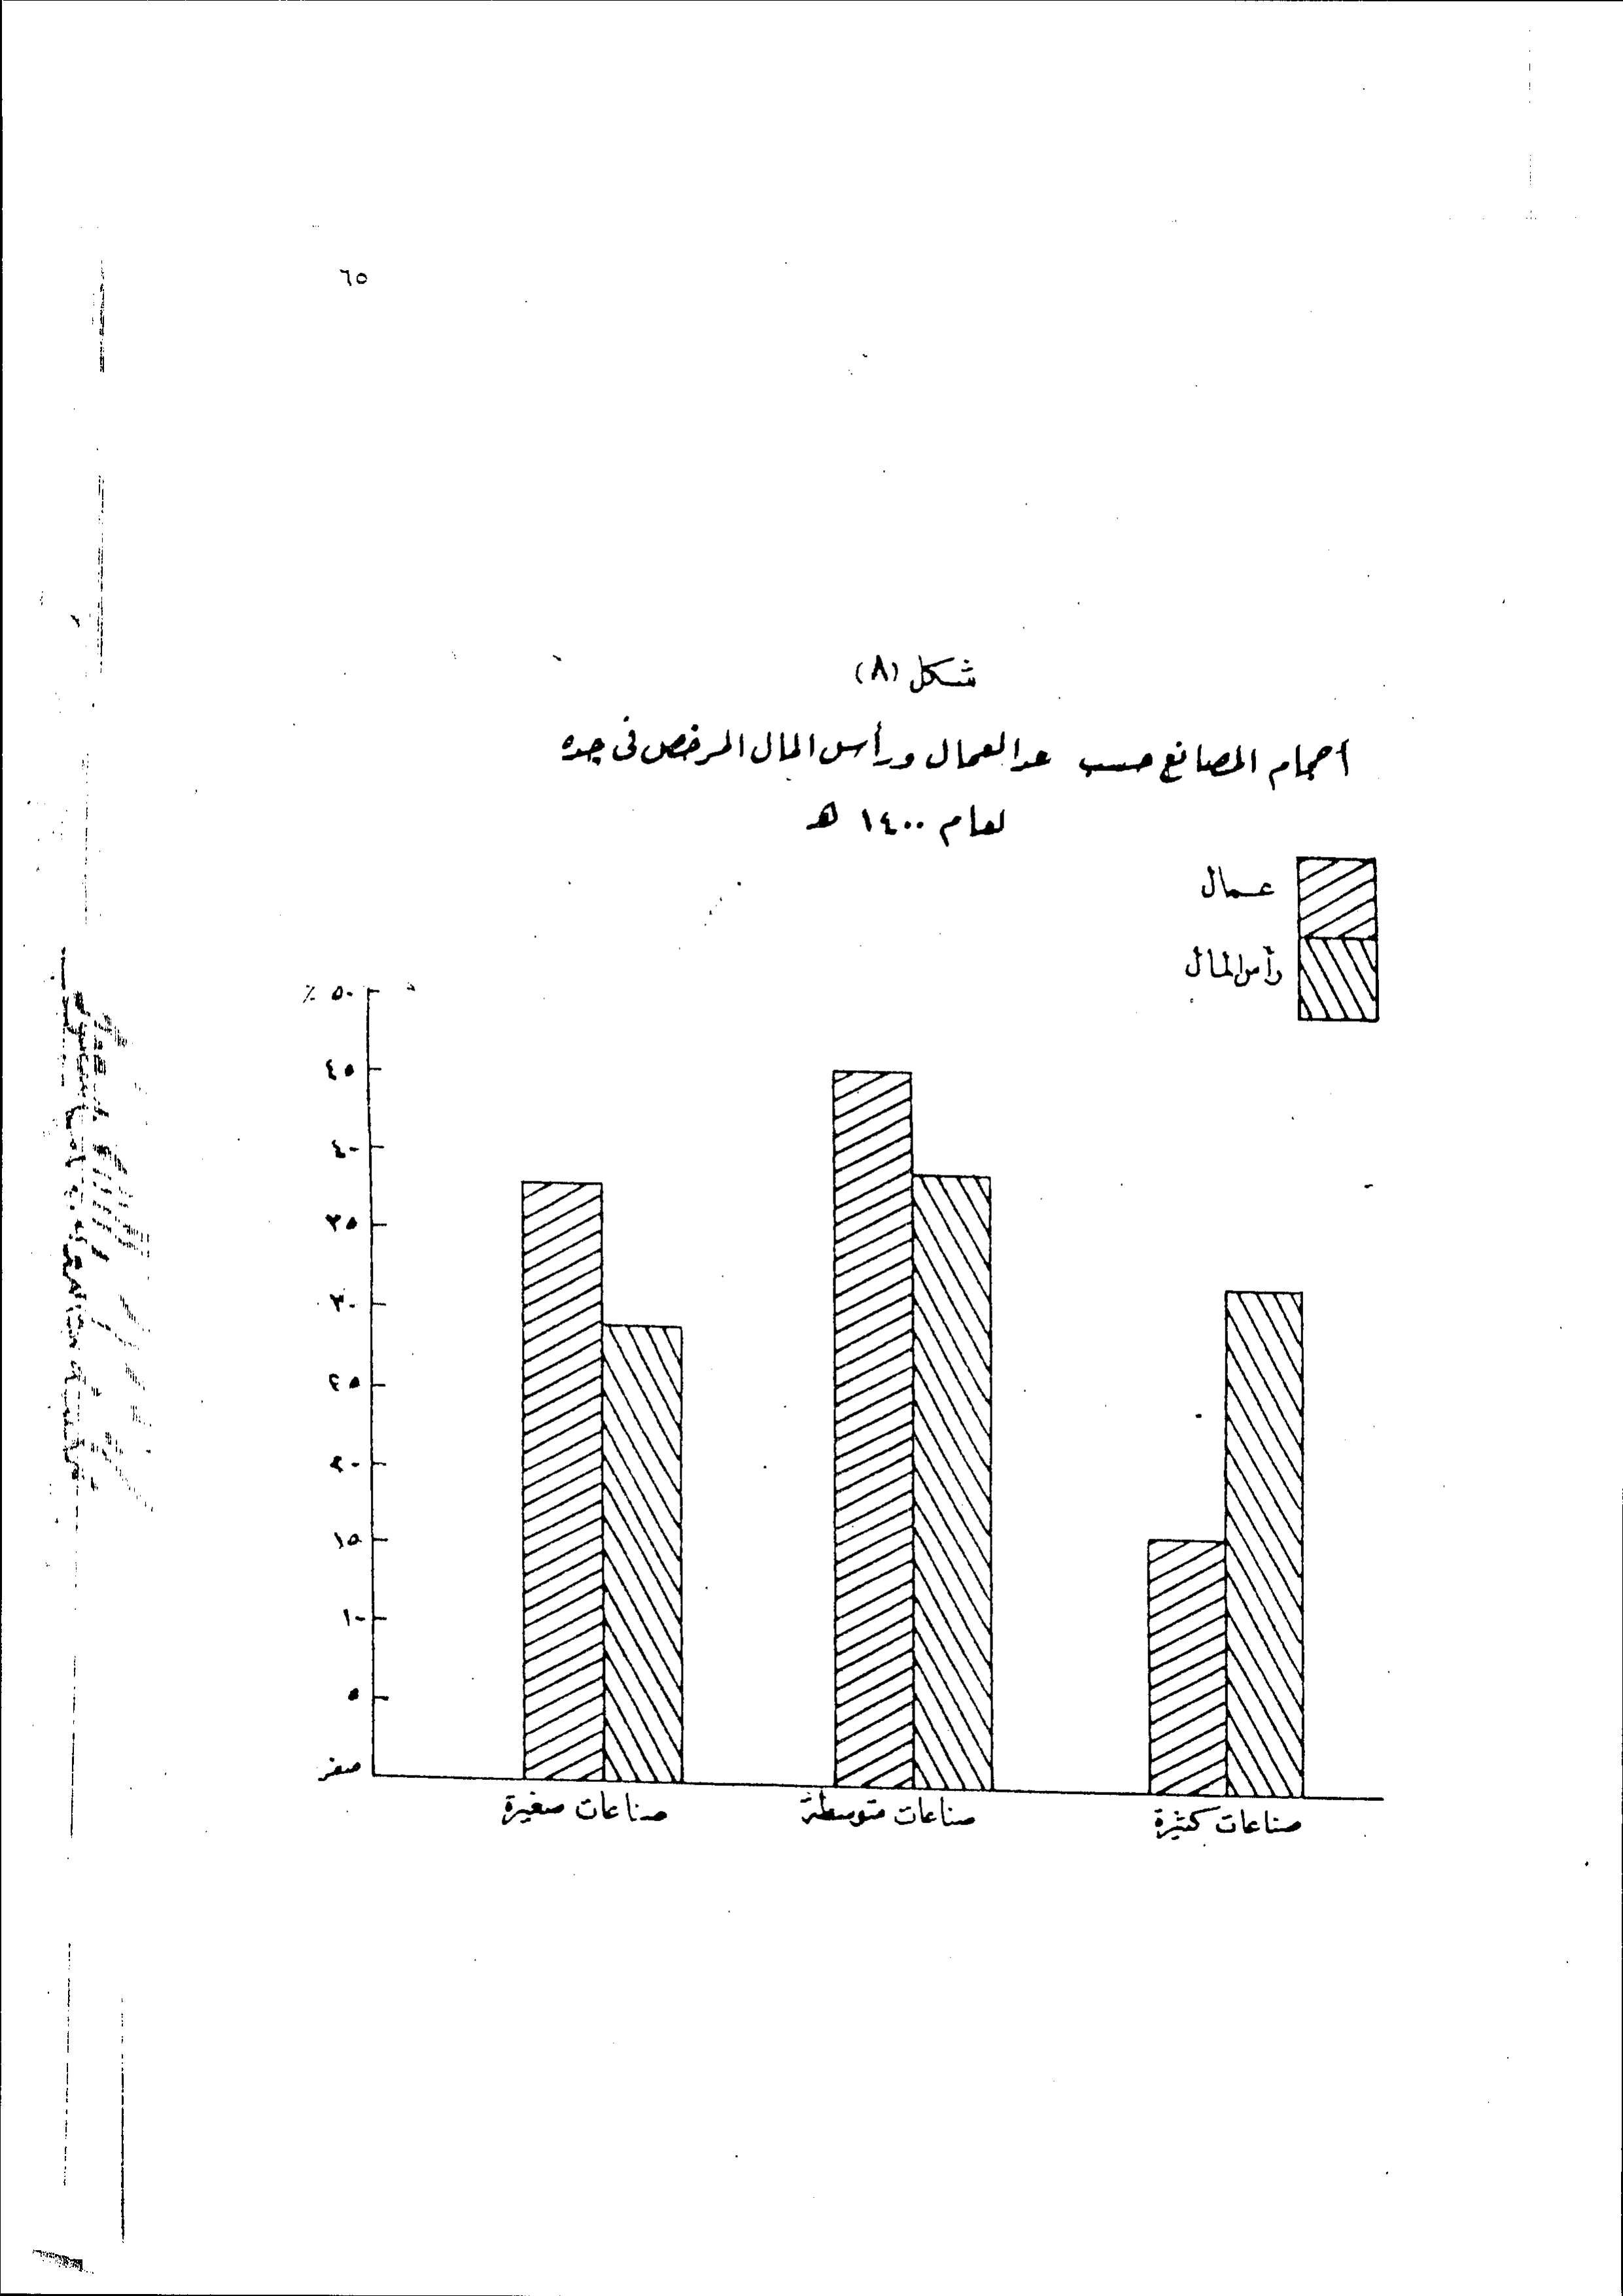 ٦٥
شكل (٨)
أحجام المصانع حسب عدد العمال ورأس المال المرخص فى جده
لعام ١٤٠٠ هـ
عمال
رأس المال
٥٠ ٪
٤٥
٤٠
٣٥
٣٠
٢٥
٢٠
١٥
١٠
٥
صفر
صناعات صغيرة
صناعات متوسطة
صناعات كثيرة